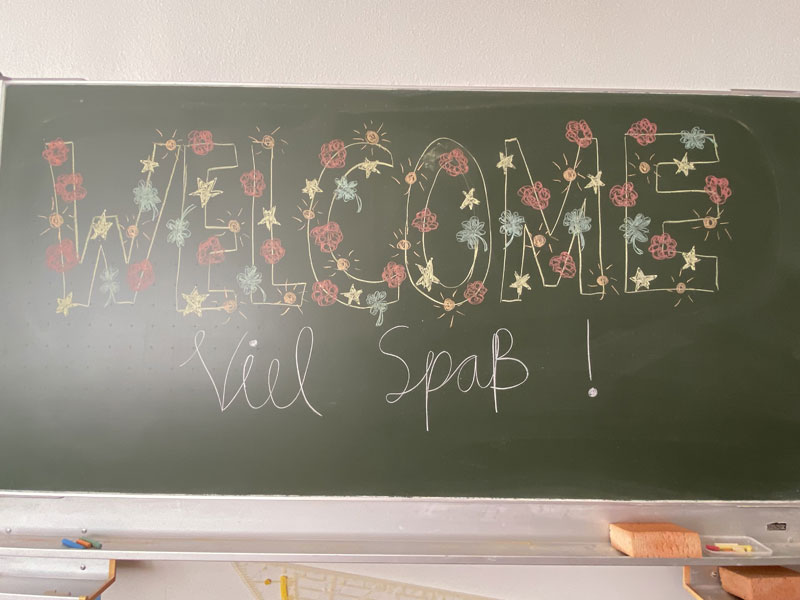 WELCOME
Viel Spaß !